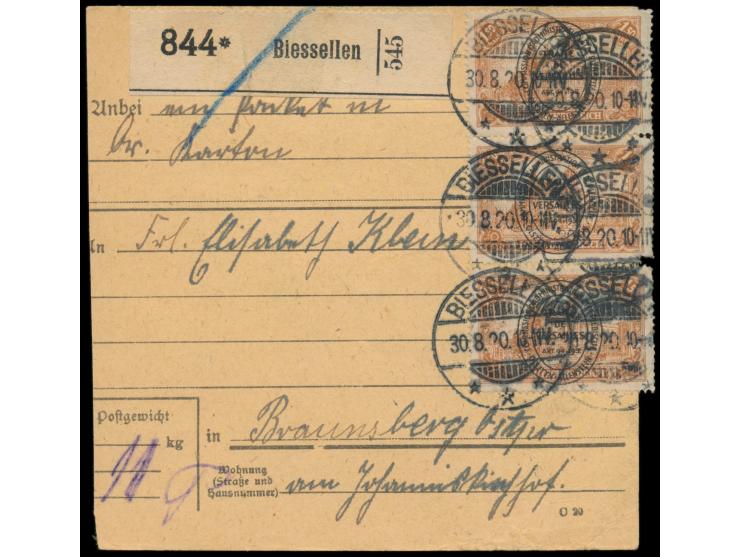 844* Biessellen 545
BIESSELLEN 30.8.20.10-11V.
BIESSELLEN 30.8.20.10-11V.
Anbei ein Paket in
Gr. Karton
BIESSELLEN 30.8.20.10-11V.
BIESSELLEN 8.20.10-11V
VERSAILLES
In Frl. Elisabeth Klein
BIESSELLEN 30.8.20.10-11V.
BIESSELLEN 8.20.10-
Postgewicht
11 kg
in Braunsberg Ostpr
Wohnung
(Straße und
Hausnummer)
am Johanniskirchhof.
C 20